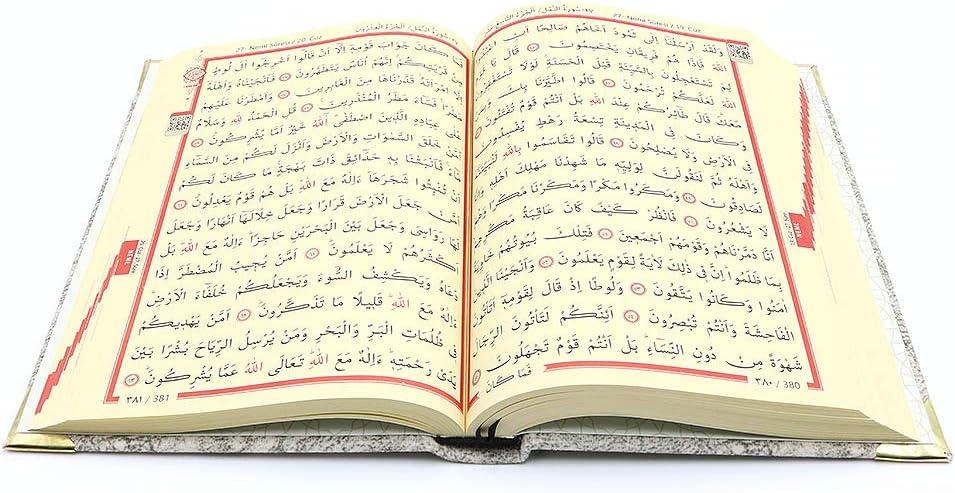 27- Neml Sûresi / 19. Cüz
وَلَقَدْ اَرْسَلْنَٓا اِلٰى ثَمُودَ اَخَاهُمْ صَالِحًا
اللّٰهَ فَاِذَا هُمْ فَرٖيقَانِ يَخْتَصِمُونَ ﴿٤٥﴾ قَالَ
لِمَ تَسْتَعْجِلُونَ بِالسَّيِّئَةِ قَبْلَ الْحَسَنَةِ لَوْلَا
اللّٰهَ لَعَلَّكُمْ تُرْحَمُونَ ﴿٤٦﴾ قَالُوا اطَّيَّرْنَا
مَعَكَ قَالَ طَٓائِرُكُمْ عِنْدَ اللّٰهِ بَلْ اَنْتُمْ قَوْمٌ تُفْتَنُونَ
وَكَانَ فِي الْمَدٖينَةِ تِسْعَةُ رَهْطٍ يُفْسِدُونَ
فِي الْاَرْضِ وَلَا يُصْلِحُونَ ﴿٤٨﴾ قَالُوا تَقَاسَمُوا بِاللّٰهِ
وَاَهْلَهُ ثُمَّ لَنَقُولَنَّ لِوَلِيِّهٖ مَا شَهِدْنَا مَهْلِكَ اَهْلِهٖ
لَصَادِقُونَ ﴿٤٩﴾ وَمَكَرُوا مَكْرًا وَمَكَرْنَا مَكْرًا
لَا يَشْعُرُونَ ﴿٥٠﴾ فَانْظُرْ كَيْفَ كَانَ عَاقِبَةُ
اَنَّا دَمَّرْنَاهُمْ وَقَوْمَهُمْ اَجْمَعٖينَ ﴿٥١﴾ فَتِلْكَ بُيُوتُهُمْ
بِمَا ظَلَمُوا اِنَّ فٖي ذٰلِكَ لَاٰيَةً لِقَوْمٍ يَعْلَمُونَ ﴿٥٢﴾ وَاَنْجَيْنَا الَّذٖينَ
اٰمَنُوا وَكَانُوا يَتَّقُونَ ﴿٥٣﴾ وَلُوطًا اِذْ قَالَ لِقَوْمِهٖٓ اَتَأْتُونَ
الْفَاحِشَةَ وَاَنْتُمْ تُبْصِرُونَ ﴿٥٤﴾ اَئِنَّكُمْ لَتَأْتُونَ الرِّجَالَ
شَهْوَةً مِنْ دُونِ النِّسَٓاءِ بَلْ اَنْتُمْ قَوْمٌ تَجْهَلُونَ
فَمَا كَانَ
٣٨٠ / 380
٢٧- سُورَةُ النَّمْلِ / اَلْجُزْءُ الْعِشْرُونَ
27- Neml Sûresi / 20. Cüz
فَمَا كَانَ جَوَابَ قَوْمِهٖٓ اِلَّٓا اَنْ قَالُٓوا اَخْرِجُٓوا اٰلَ لُوطٍ
مِنْ قَرْيَتِكُمْ اِنَّهُمْ اُنَاسٌ يَتَطَهَّرُونَ ﴿٥٦﴾ فَاَنْجَيْنَاهُ وَاَهْلَهُٓ
امْرَاَتَهُ قَدَّرْنَاهَا مِنَ الْغَابِرٖينَ ﴿٥٧﴾ وَاَمْطَرْنَا عَلَيْهِمْ
فَسَٓاءَ مَطَرُ الْمُنْذَرٖينَ ﴿٥٨﴾ قُلِ الْحَمْدُ لِلّٰهِ وَسَلَامٌ
عَلٰى عِبَادِهِ الَّذٖينَ اصْطَفٰى آٰللّٰهُ خَيْرٌ اَمَّا يُشْرِكُونَ ﴿٥٩﴾
اَمَّنْ خَلَقَ السَّمٰوَاتِ وَالْاَرْضَ وَاَنْزَلَ لَكُمْ مِنَ السَّمَٓاءِ
فَاَنْبَتْنَا بِهٖ حَدَٓائِقَ ذَاتَ بَهْجَةٍ مَا كَانَ لَكُمْ
اَنْ تُنْبِتُوا شَجَرَهَا ءَاِلٰهٌ مَعَ اللّٰهِ بَلْ هُمْ قَوْمٌ يَعْدِلُونَ ﴿٦٠﴾
اَمَّنْ جَعَلَ الْاَرْضَ قَرَارًا وَجَعَلَ خِلَالَهَٓا اَنْهَارًا وَجَعَلَ
لَهَا رَوَاسِيَ وَجَعَلَ بَيْنَ الْبَحْرَيْنِ حَاجِزًا ءَاِلٰهٌ مَعَ اللّٰهِ بَلْ
اَكْثَرُهُمْ لَا يَعْلَمُونَ ﴿٦١﴾ اَمَّنْ يُجٖيبُ الْمُضْطَرَّ اِذَا
دَعَاهُ وَيَكْشِفُ السُّٓوءَ وَيَجْعَلُكُمْ خُلَفَٓاءَ الْاَرْضِ
ءَاِلٰهٌ مَعَ اللّٰهِ قَلٖيلًا مَا تَذَكَّرُونَ ﴿٦٢﴾ اَمَّنْ يَهْدٖيكُمْ
فٖي ظُلُمَاتِ الْبَرِّ وَالْبَحْرِ وَمَنْ يُرْسِلُ الرِّيَاحَ بُشْرًا بَيْنَ
يَدَيْ رَحْمَتِهٖ ءَاِلٰهٌ مَعَ اللّٰهِ تَعَالَى اللّٰهُ عَمَّا يُشْرِكُونَ ﴿٦٣﴾
٣٨١ / 381